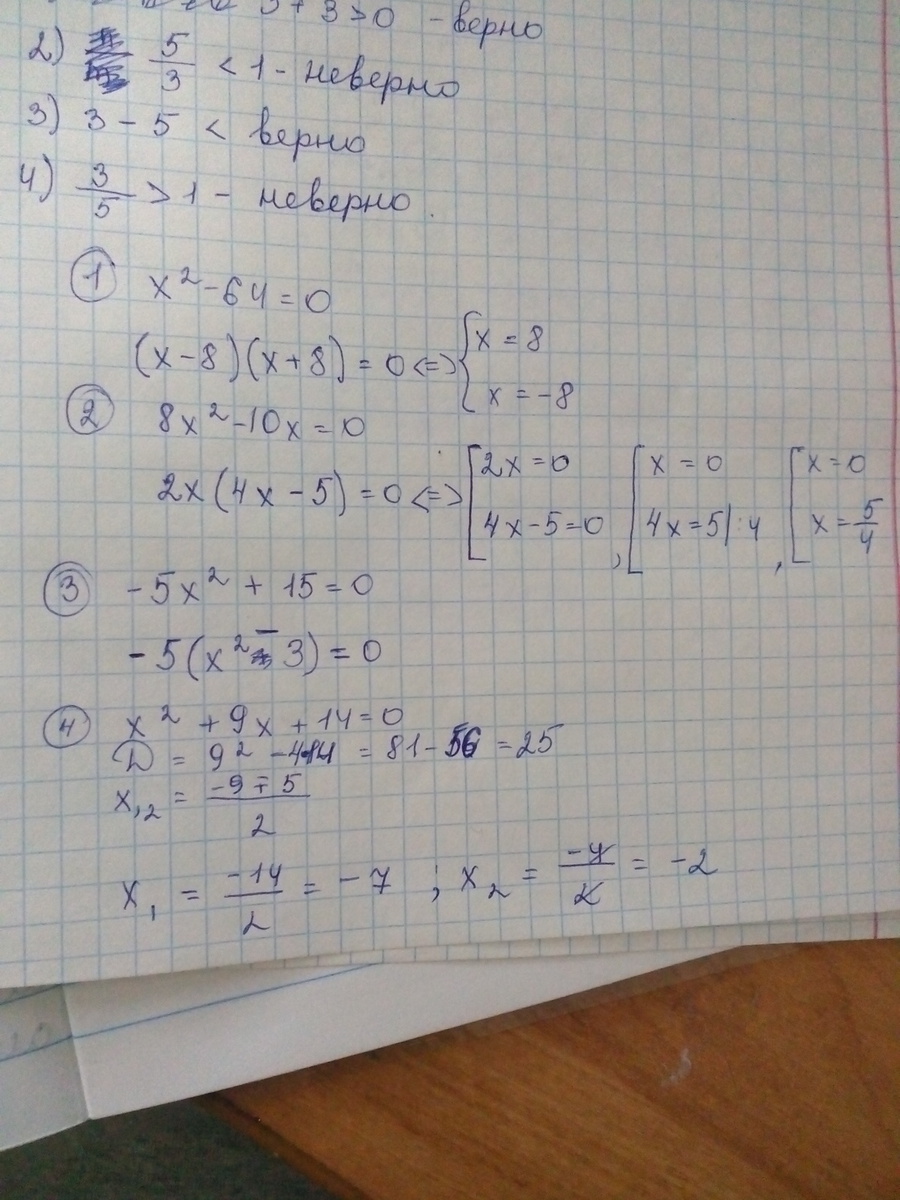 3 + 3 > 0 - верно
2) 5/3 < 1 - неверно
3) 3 - 5 < верно
4) 3/5 > 1 - неверно.
① x² - 64 = 0
(x - 8)(x + 8) = 0 <=> { x = 8
x = -8
② 8x² - 10x = 0
2x(4x - 5) = 0 <=> [ 2x = 0 [ x = 0 [ x = 0
4x - 5 = 0 , 4x = 5 | : 4 , x = 5/4
③ - 5x² + 15 = 0
- 5(x² - 3) = 0
④ x² + 9x + 14 = 0
D = 9² - 4·14 = 81 - 56 = 25
x₁,₂ = (-9 ∓ 5)/2
x₁ = -14/2 = -7 ; x₂ = -4/2 = -2